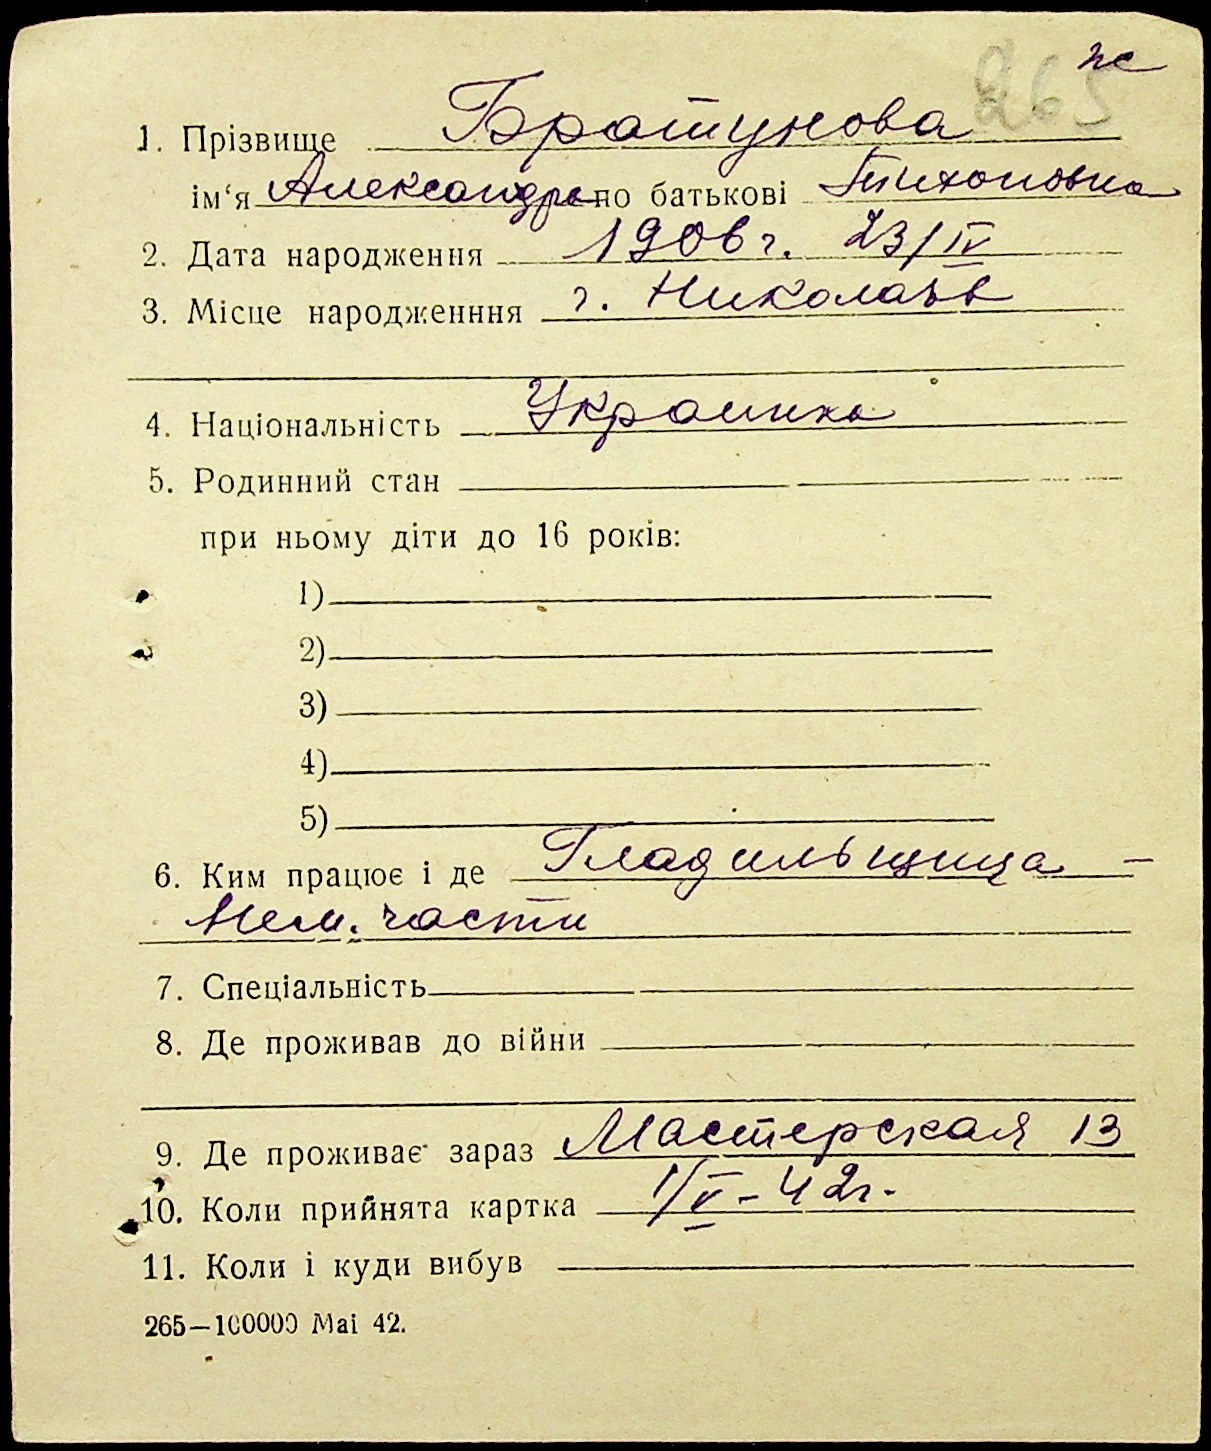 265 не
1. Прізвище Братунова
ім‘я Александра по батькові Тихоновна
2. Дата народження 1906 г. 23/IV
3. Місце народженння г. Николаѣв
4. Національність Украинка
5. Родинний стан
при ньому діти до 16 років:
1)
2)
3)
4)
5)
6. Ким працює і де Гладильщица –
Нем. части
7. Спеціальність
8. Де проживав до війни
9. Де проживає зараз Мастерская 13
10. Коли прийнята картка 1/V – 42г.
11. Коли і куди вибув
265—100000 Mai 42.